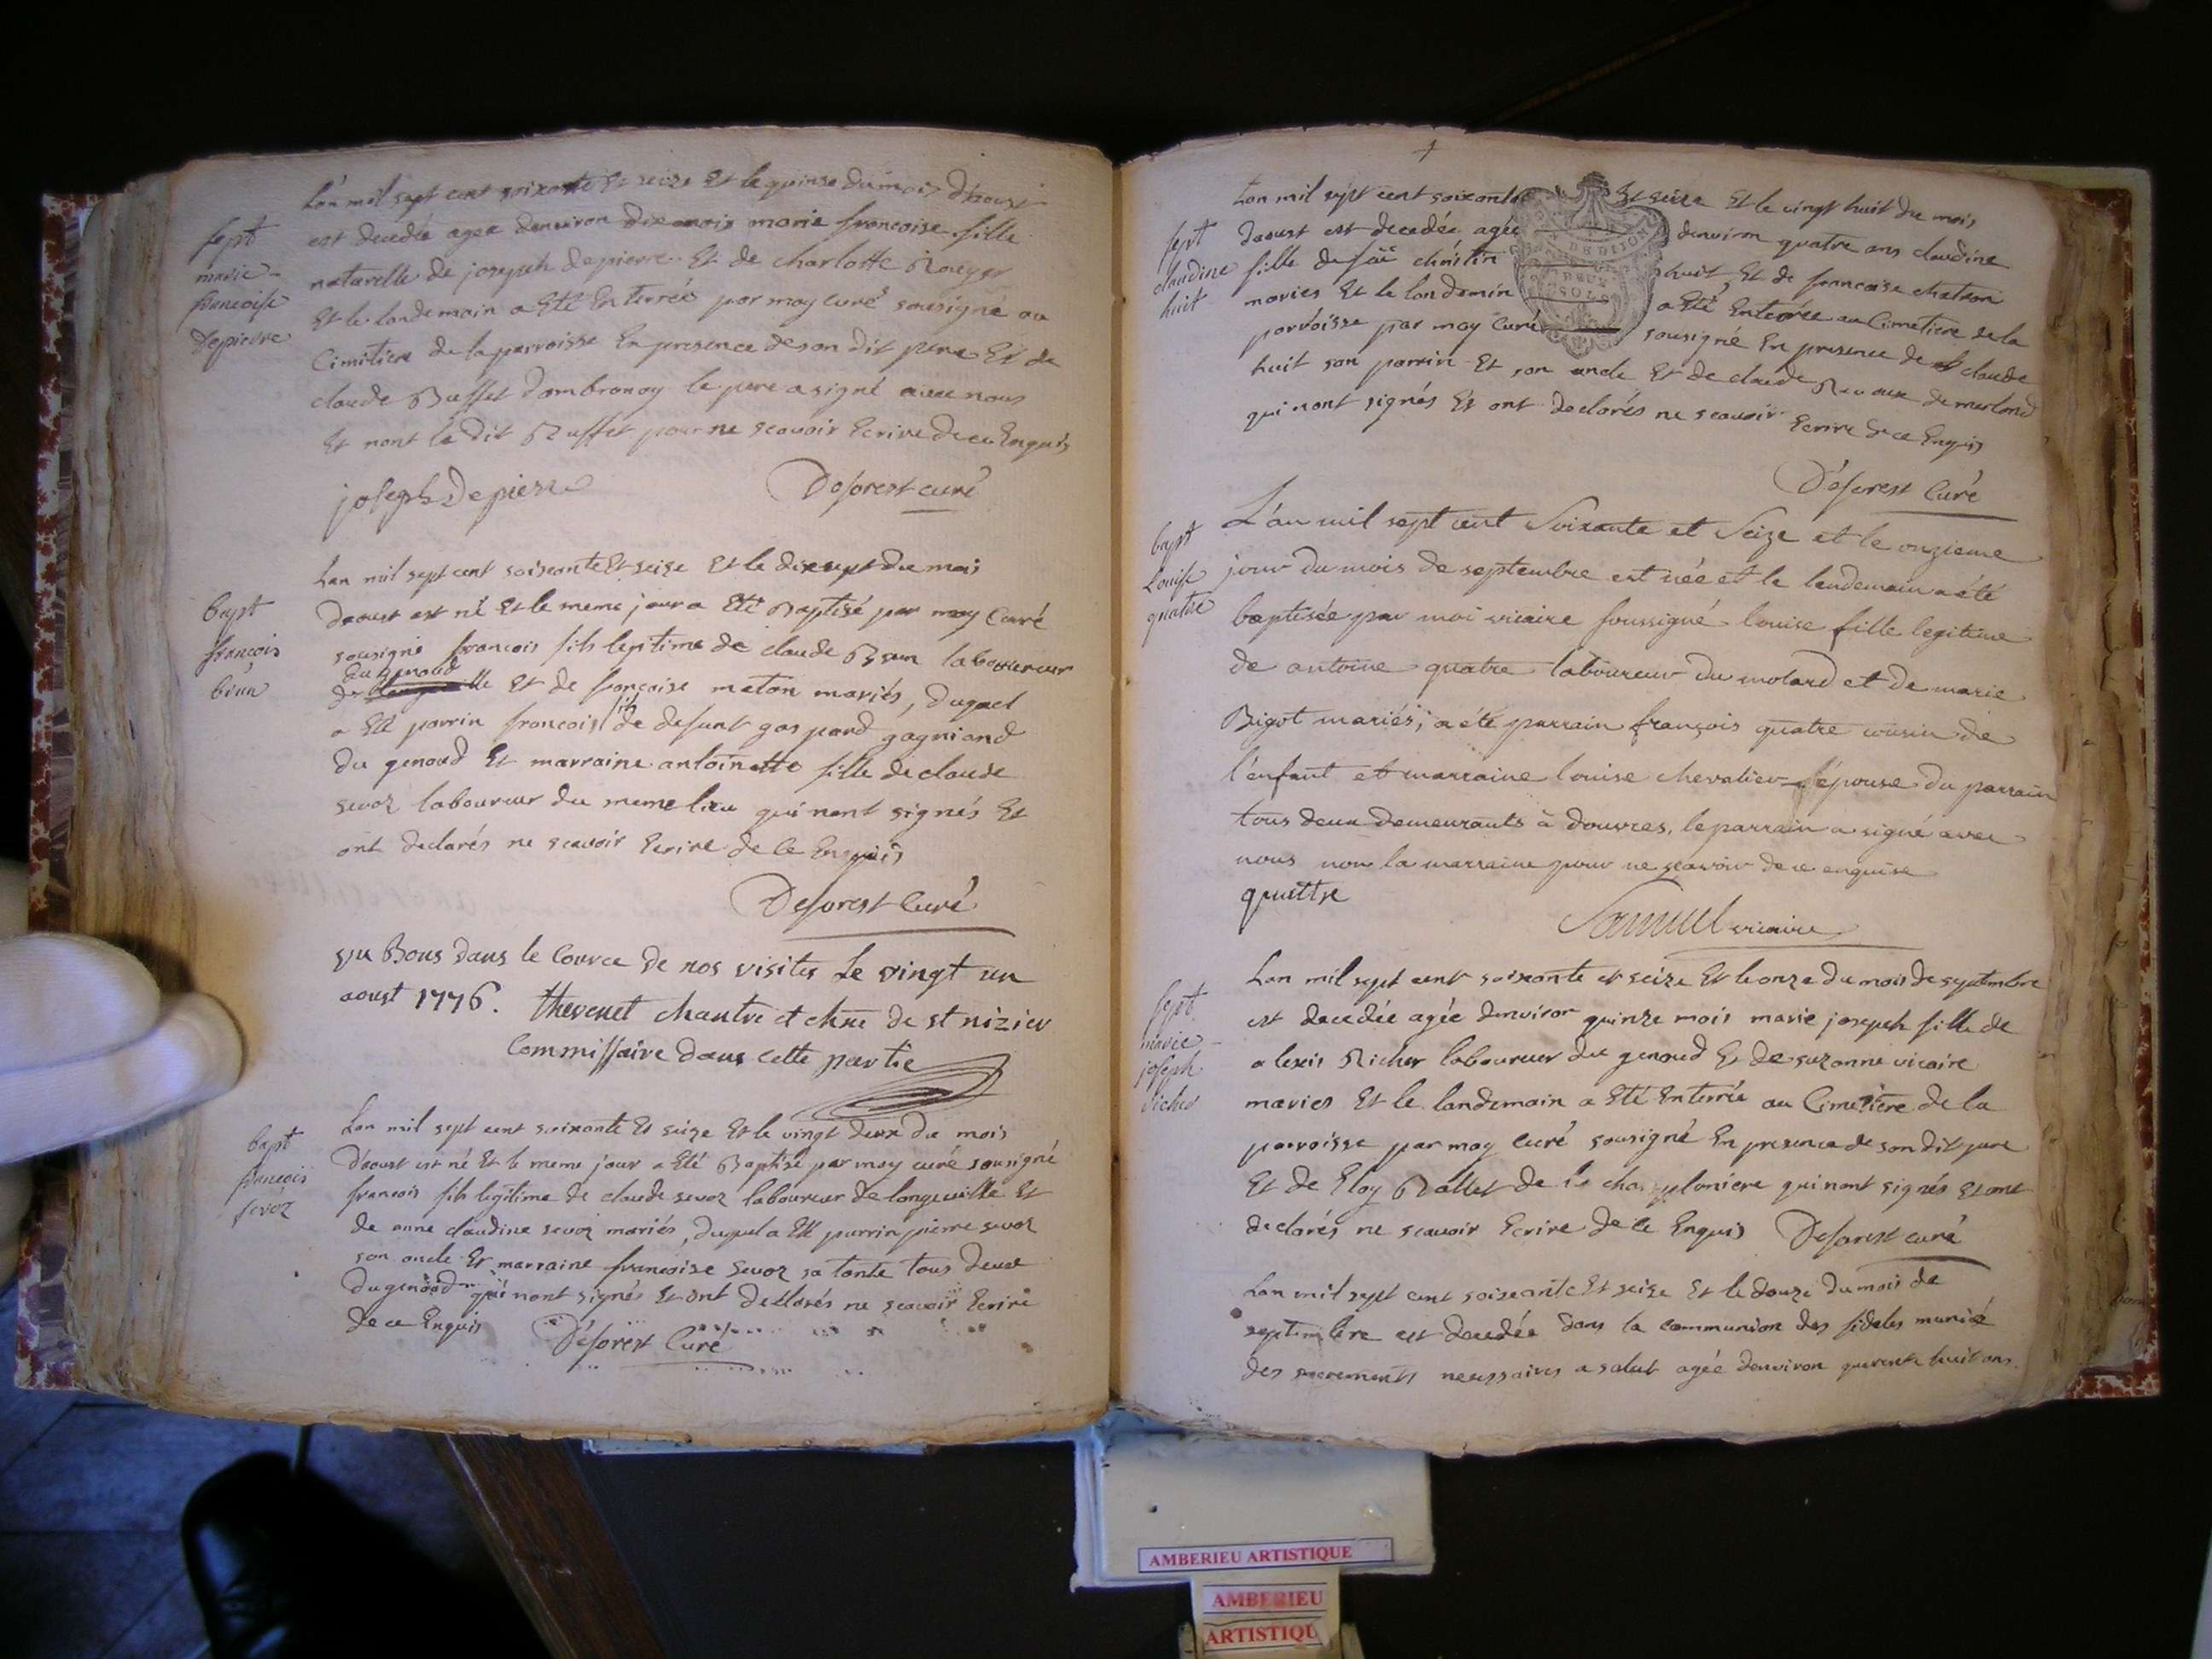 L'an mil sept cent soixante Et seize Et le quinze du mois D'haoust
sept
marie -
francoise
Depierre
est decedée agee denviron dix mois marie francoise fille
naturelle de joseph depierre Et de charlotte Roeyer
Et le landemain a Eté Enterrée par moy curé sousigné au
Cimitiere de la parroisse En presence de son dit pere Et de
claude Buffet dambronay le pere a signé avec nous
Et non le dit Buffet pour ne scavoir Ecrire de ce Enquis
joseph Depierre Deforest curé
Lan mil sept cent soixante Et seize Et le dix sept du mois
bapt
francois
biun
daoust est né Et le meme jour a Eté Baptisé par moy Curé
sousigné francois fils legitime de claude laboureur
du genoud
de Et de francoise meton mariés, duquel
a Eté parrin francois fils de defunt gaspard gagniand
du genoud Et marraine antoinette fille de claude
sevoz laboureur du meme lieu qui nont signés Et
ont declarés ne scavoir Ecrire de ce Enquis
Deforest Curé
vu Bons dans le Cource de nos visites Le vingt un
aoust 1776. thevenet chantre et chne de st nizier
Commissaire dans cette partie
Lan mil sept cent soixante Et seize Et le vingt deux du mois
bapt
francois
sevoz
d'aoust est né Et le meme jour a Eté Baptisé par moy curé sousigné
francois fils legitime de claude sevoz laboureur de longeville Et
de anne claudine sevoz mariés, duquel a Eté parrin pierre sevoz
son oncle Et marraine francoise sevoz sa tante tous deux
du genoud qui nont signés Et ont declarés ne scavoir Ecrire
de ce Enquis Déforest Curé
Lan mil sept cent soixante Et seize Et le vingt huit du mois
sept
claudine
huit
daoust est decedée agée denviron quatre ans claudine
fille de chrîstin huit, Et de francoise chatron
mariés Et le landemin a Eté Enterrée au Cimetiere de la
parroisse par moy Curé sousigné En presence de claude
huit son parrin Et son oncle Et de claude de merland
qui nont signés Et ont declarés ne scavoir Ecrire de ce Enquis
DE DIJON
DEUX
SOLS
Déforest Curé
L'an mil sept cent Soixante et Seize et le onzieme
bapt
Louise
quatre
jour du mois de septembre est née et le lendemain a été
baptisée par moi vicaire soussigné louise fille legitime
de antoine quatre laboureur du molard et de marie
Bigot mariés; a été parrain françois quatre cousin de
l'enfant et marraine louise chevalier l'épouse du parrain
tous deux demeurants à douvres, le parrain a signé avec
nous non la marraine pour ne scavoir de ce enquise
quattre
Samuel vicaire
Lan mil sept cent soixante et seize Et le onze du mois de septembre
sept
marie -
joseph
richer
est decedée agée denviron quinze mois marie joseph fille de
alexis Richer laboureur du genoud Et de suzanne vicaire
mariés Et le landemain a Eté Enterrée au Cimetière de la
parroisse par moy curé sousigné En presence de son dit pere
Et de Eloy Rallet de qui nont signés Et ont
declarés ne scavoir Ecrire de ce Enquis Deforest curé
Lan mil sept cent soixante Et seize Et le douze du mois de
septembre est decedée dans la communion des fideles muniée
des sacrements necessaires a salut agée denviron quarente huit ans
AMBERIEU ARTISTIQUE
AMBERIEU
ARTISTIQU